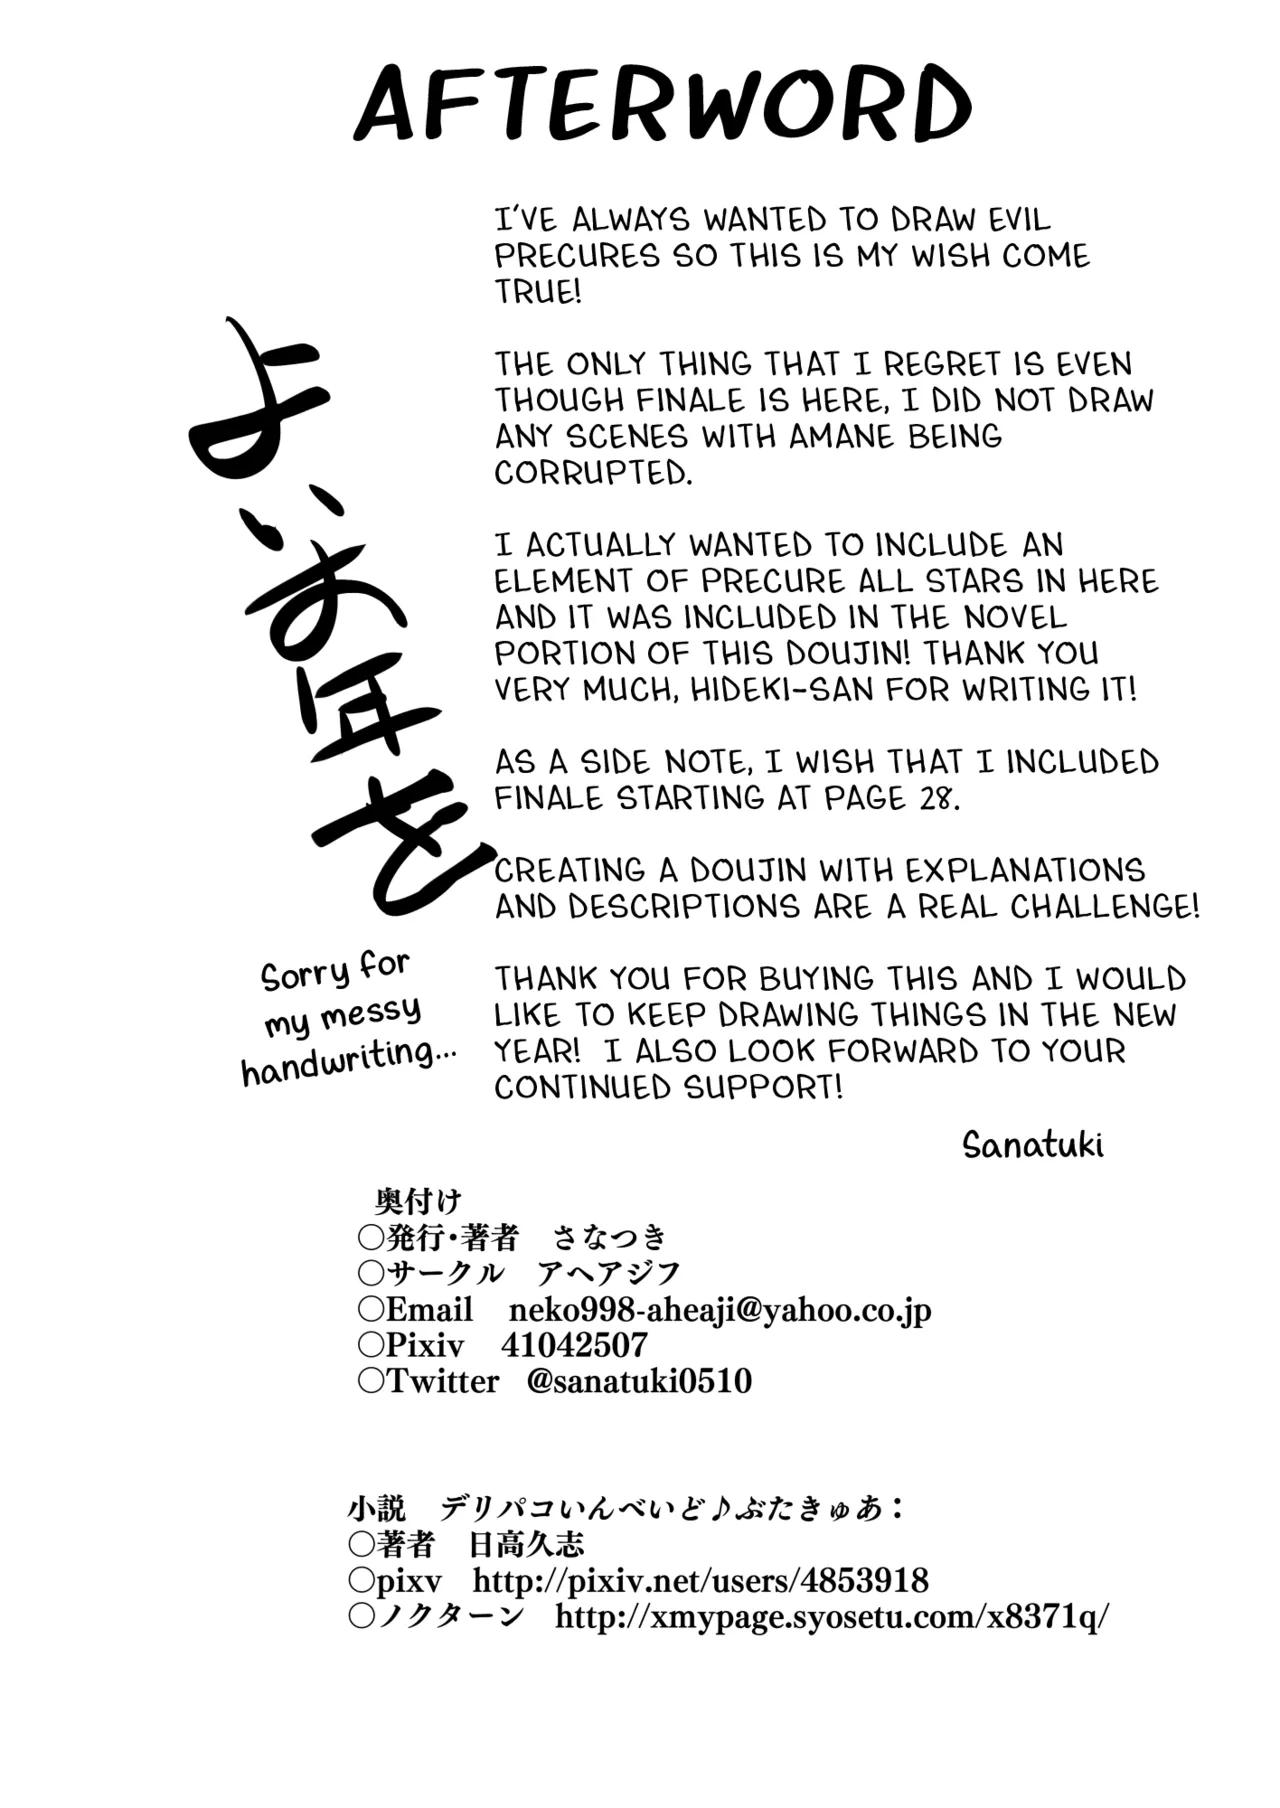 AFTERWORD
I'VE ALWAYS WANTED TO DRAW EVIL
PRECURES SO THIS IS MY WISH COME
TRUE!
THE ONLY THING THAT I REGRET IS EVEN
THOUGH FINALE IS HERE, I DID NOT DRAW
ANY SCENES WITH AMANE BEING
CORRUPTED.
I ACTUALLY WANTED TO INCLUDE AN
ELEMENT OF PRECURE ALL STARS IN HERE
AND IT WAS INCLUDED IN THE NOVEL
PORTION OF THIS DOUJIN! THANK YOU
VERY MUCH, HIDEKI-SAN FOR WRITING IT!
AS A SIDE NOTE, I WISH THAT I INCLUDED
FINALE STARTING AT PAGE 28.
CREATING A DOUJIN WITH EXPLANATIONS
AND DESCRIPTIONS ARE A REAL CHALLENGE!
THANK YOU FOR BUYING THIS AND I WOULD
LIKE TO KEEP DRAWING THINGS IN THE NEW
YEAR! I ALSO LOOK FORWARD TO YOUR
CONTINUED SUPPORT!
Sanatuki
よいお年を
Sorry for
my messy
handwriting...
奥付け
○発行・著者 さなつき
○サークル アヘアジフ
○Email neko998-aheaji@yahoo.co.jp
○Pixiv 41042507
○Twitter @sanatuki0510
小説 デリパコいんべいど♪ぶたきゅあ：
○著者 日高久志
○pixv http://pixiv.net/users/4853918
○ノクターン http://xmypage.syosetu.com/x8371q/